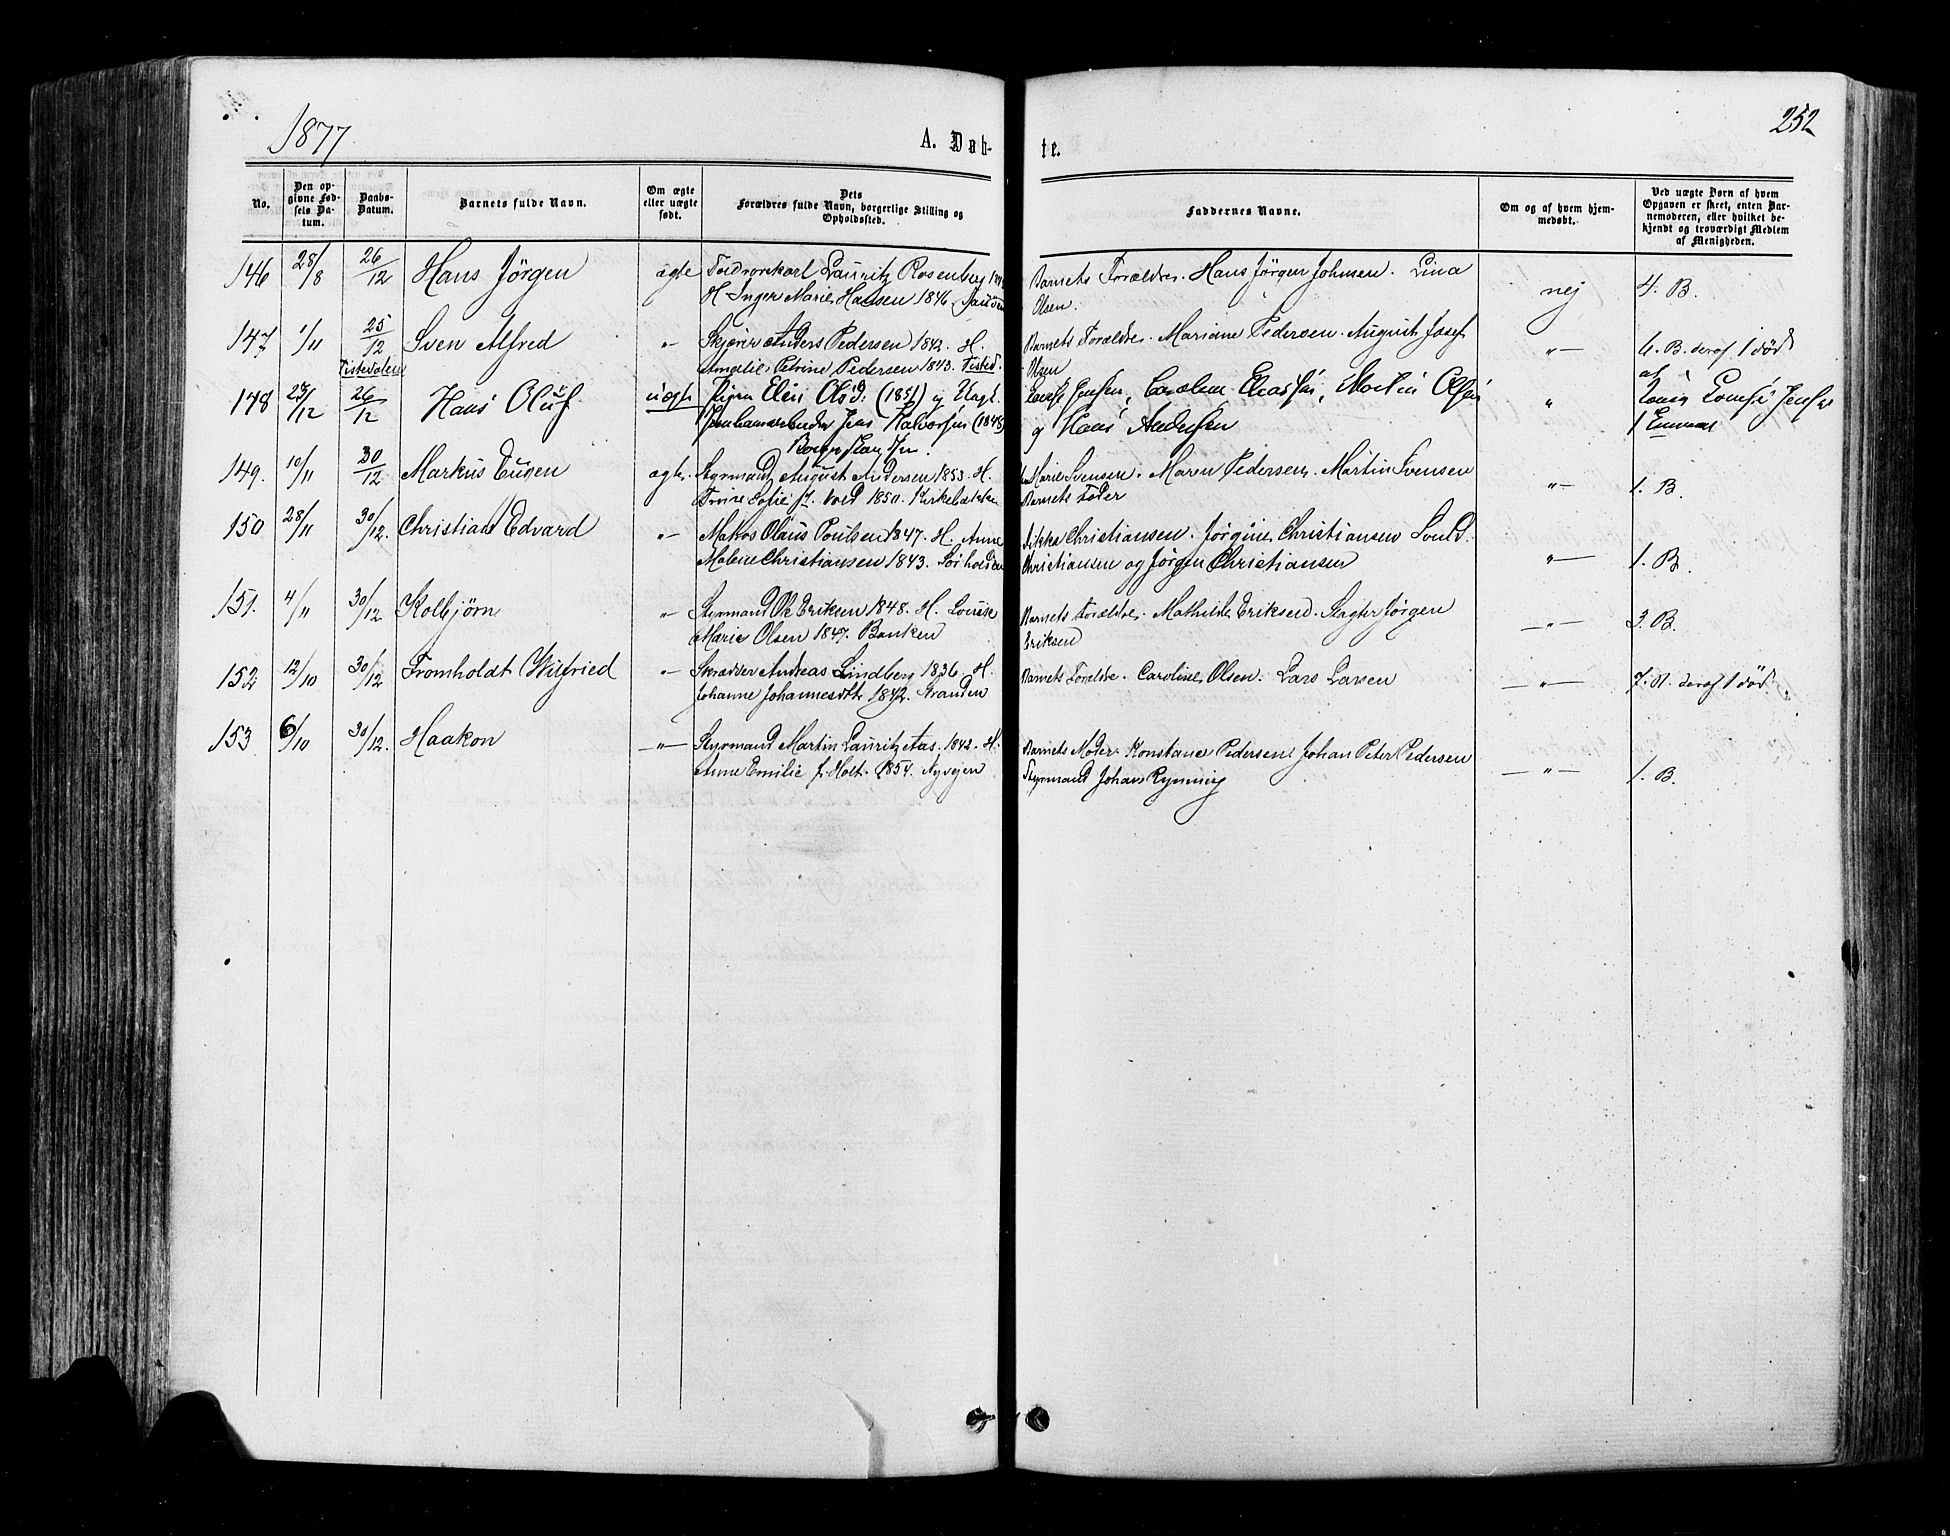 1877
252
A. Døb-
te.
No.
Den op-
givne Fød-
sels Da-
tum.
Daabs-
Datum.
Barnets fulde Navn.
Om ægte
eller uægte
født.
Dets
Forældres fulde Navn, borgerlige Stilling og
Opholdssted.
Faddernes Navne.
Om og af hvem hjem-
medøbt.
Ved uægte Børn af hvem
Opgaven er skeet, enten Bar-
nemoderen, eller hvilket be-
kjendt og troværdigt Medlem
af Menigheden.
146 28/8 26/12 Hans Jörgen ægte Lauritz Rosenberg
H. Inger Marie Hansen 1846.
Barnets Forældre. Hans Jörgen Johnsen. Lina
Olsen.
nej 4. B.
147 1/11 25/12 Sven Alfred " Anders Pedersen 1842. H.
Amalie Petrine Pedersen 1843.
Barnets Forældre. Mariane Pedersen. August Josef
Olsen
" 6. B. deraf 1 död
148 23/12 26/12 Hans Oluf uægte Pigen Elen Olsd: (1851) og Ungk.
Jens Halvorsen (1848)
Jensen, Martin Olsen
og Hans Andersen
" af
Louise Jensen
149. 10/11 30/12 Markus Eugen ægte Styrmand August Andersen 1853. H.
Trine Sofie f. 1850. Kirkebakken
Marie Svensen. Maren Pedersen. Martin Svensen
Barnets Fader
" 1. B.
150 28/11 30/12. Christian Edvard " Matros Olaus Poulsen 1847. H. Anne
Malene Christiansen 1843.
Christiansen. Jörgine Christiansen
Christiansen og Jörgen Christiansen
" 1. B.
151. 4/11 30/12 Kolbjörn " Styrmand Ole Eriksen 1848. H. Lovise
Marie Olsen 1847. Banken
Barnets Forældre. Mathilde Eriksen. Slagter Jörgen
Eriksen
" 3. B.
152 12/10 30/12 Fromholdt Wilfried " Skrædder Andreas Lindberg 1836. H.
Johanne Johannesdtr. 1842. Stranden
Barnets Forældre. Caroline Olsen. Lars Larsen
" 7. B. deraf 1 död.
153. 6/10 30/12. Haakon " Styrmand Martin Lauritz Aas. 1842. H.
Anne Emilie f. Holt. 1854. Nyvejen
Barnets Moder. Konstance Pedersen. Johan Peter Pedersen
Styrmand Johan Rynning
" 1. B.